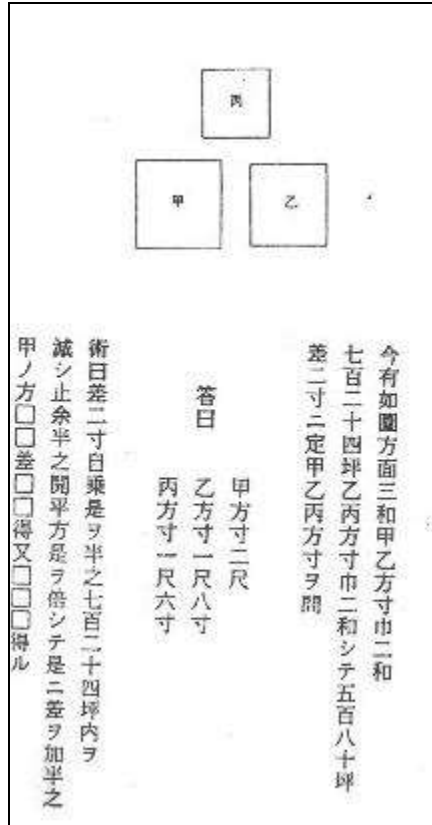 丙
甲
乙
今有如圖方面三和甲乙方寸巾二和
七百二十四坪乙丙方寸巾二和シテ五百八十坪
差二寸ニ定甲乙丙方寸ヲ問
答曰
甲方寸二尺
乙方寸一尺八寸
丙方寸一尺六寸
術曰差二寸自乗是ヲ半之七百二十四坪内ヲ
減シ止余半之開平方是ヲ倍シテ是ニ差ヲ加半之
甲ノ方□□差□□得又□□□得ル